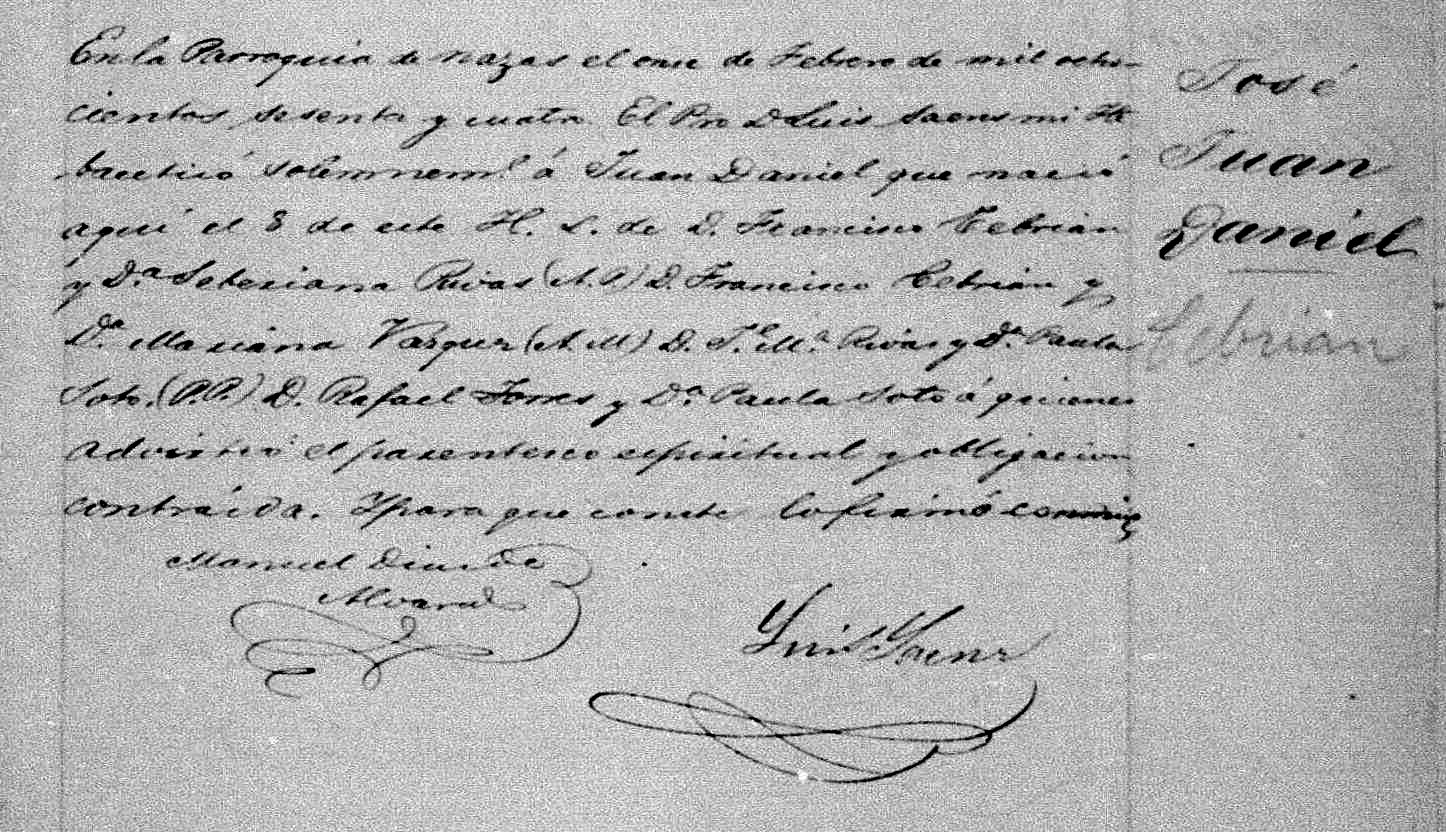 En la Parroquia de Nazas el once de Febrero de mil ocho-
cientos sesenta y cuatro El Pro D Luis Saens mi Tte
bautisó solemnemte á Juan Daniel que nació
aquí el 3 de este H. L. de D. Francisco Cebrian
y Da Seberiana Rivas (A.P.) D. Francisco Cebrian y
Da Mariana Vasquez (A.M) D. Je Ma Rivas y Da Paula
Soto. (P.P.) D. Rafael Torres y Da Paula Soto á quienes
advirtió el parentesco espiritual y obligacion
contraída. Y para que conste lo firmó conmigo
Manuel de
Luis Saenz
José
Juan
Daniel
Cebrian